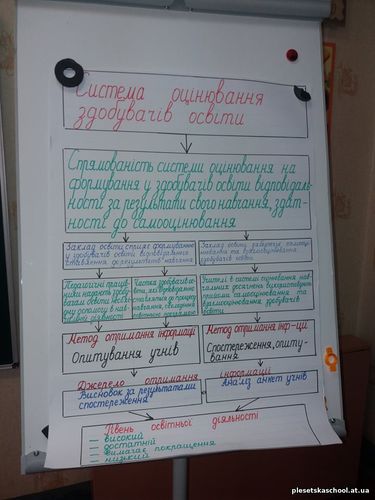 Система оцінювання
здобувачів освіти
Спрямованість системи оцінювання на
формування у здобувачів освіти відповідаль-
ності за результати свого навчання, здат-
ності до самооцінювання
Заклад освіти сприяє формуванню
у здобувачів освіти відповідального
ставлення до результатів навчання
Заклад освіти
та взаємооцінювання
здобувачів освіти
Педагогічні праців-
ники надають здобу-
вачам освіти необхід-
ну допомогу в нав-
чальній діяльності
Частка здобувачів ос-
віти, які відповідально
ставляться до процесу
навчання, оволодіння
освітньою програмою
Учителі в системі оцінювання нав-
чальних досягнень використовують
прийоми самооцінювання та
взаємооцінювання здобувачів
освіти
Метод отримання інформації
Опитування учнів
Метод отримання інф-ції
Спостереження, опиту-
вання
Джерело отримання інформації
Висновок за результатами
спостереження
Аналіз анкет учнів
Рівень освітньої діяльності
— високий
— достатній
— вимагає покращення
— низький
plesetskaschool.at.ua